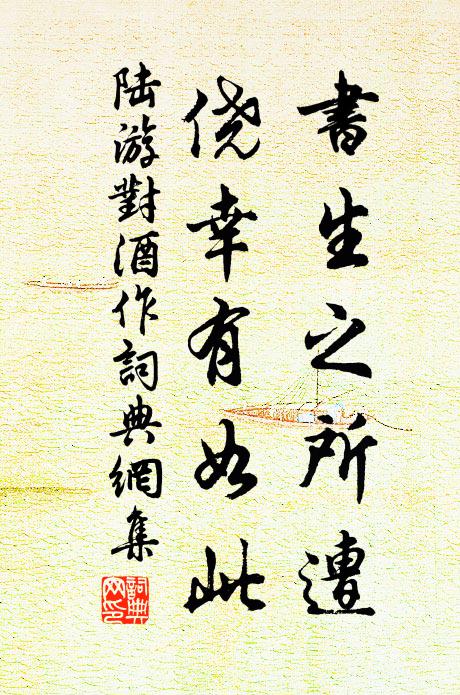 書生之所遭
僥幸有如此
陸游對酒作詞典網集
詞典網印